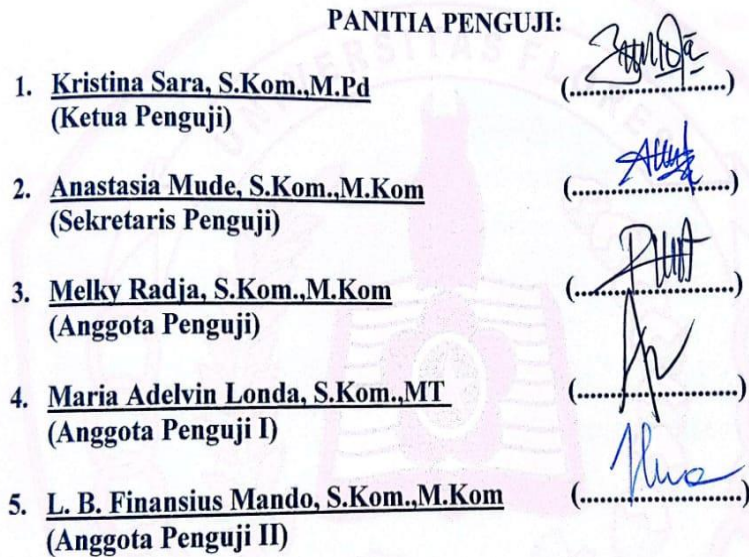 PANITIA PENGUJI:
1. Kristina Sara, S.Kom.,M.Pd (.........................)
(Ketua Penguji)
2. Anastasia Mude, S.Kom.,M.Kom (.........................)
(Sekretaris Penguji)
3. Melky Radja, S.Kom.,M.Kom (.........................)
(Anggota Penguji)
4. Maria Adelvin Londa, S.Kom.,MT (.........................)
(Anggota Penguji I)
5. L. B. Finansius Mando, S.Kom.,M.Kom (.........................)
(Anggota Penguji II)
UNIVERSITAS FLORES